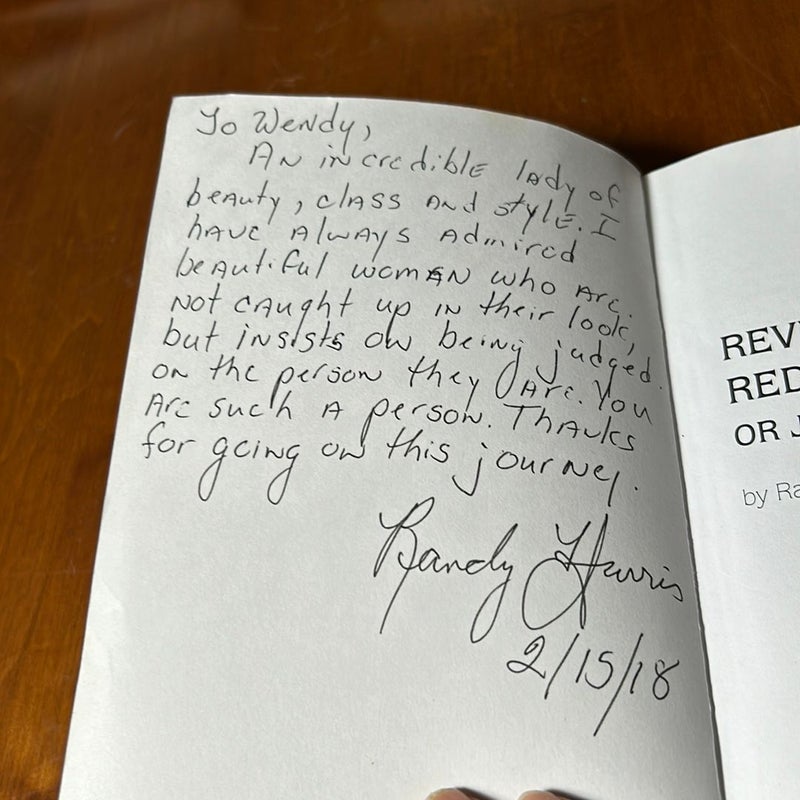 To Wendy,
An incredible lady of
beauty, class and style. I
have always admired
beautiful woman who are
not caught up in their look,
but insists on being judged
on the person they are. You
are such a person. Thanks
for going on this journey.
Randy Harris
2/15/18
REV
RED
OR J
by Ra